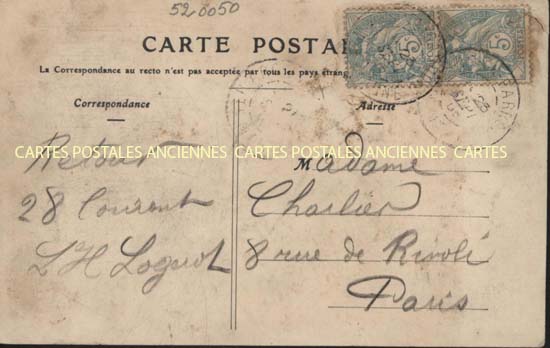 520050
CARTE POSTAL
La Correspondance au recto n'est pas acceptée par tous les pays étrang
Correspondance
Adresse
5
5
PARIS
CARTES POSTALES ANCIENNES CARTES POSTALES ANCIENNES CARTES POSTALES ANCIENNES
Retour
28 Courant
Madame
Charlier
8 rue de Rivoli
Paris